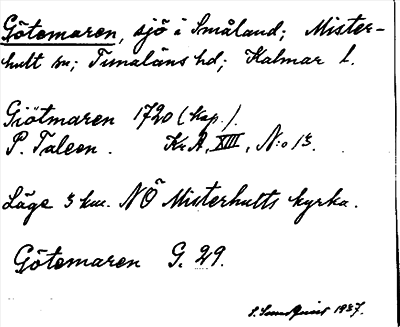 Götemaren, sjö i Småland; Mister-
hult sn; Tunaläns hd; Kalmar l.
Giötmaren 1720 (kap.).
P. Taleen. Kr A, XIII, N:o 13.
Läge 3 km. NÖ Misterhults kyrka.
Götemaren G. 29.
S. Sundquist 1937.